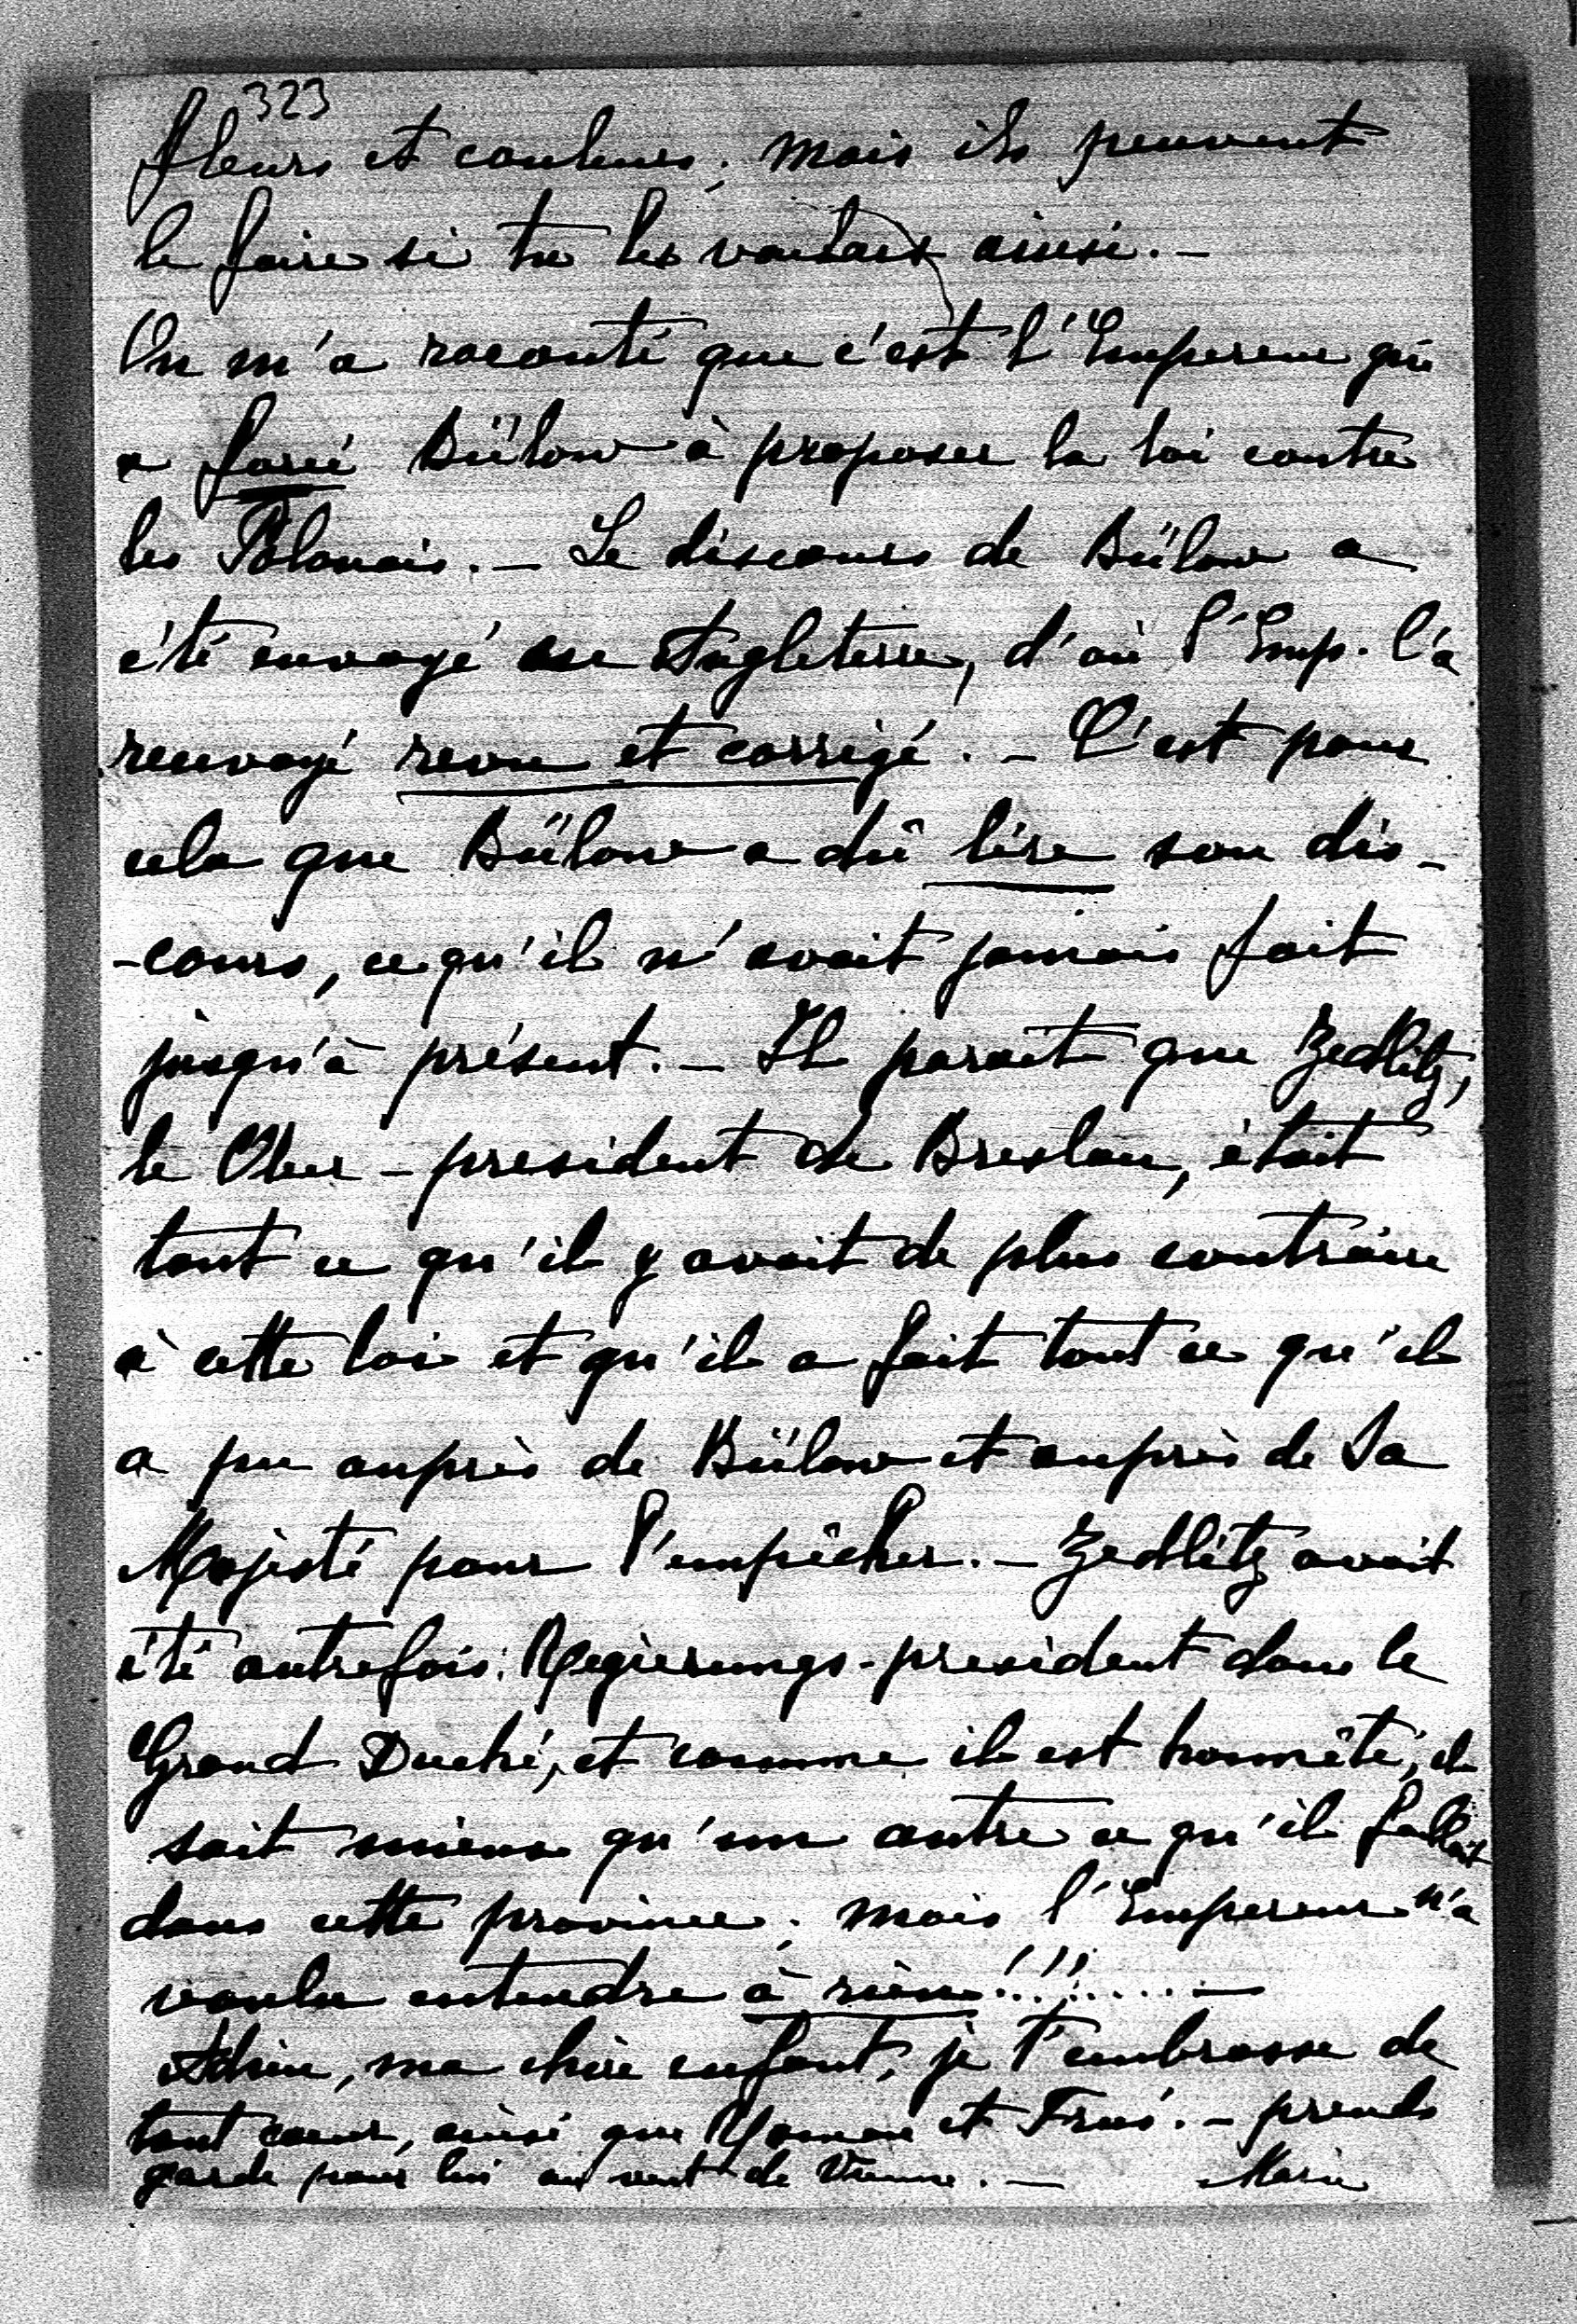 323
fleurs et couleurs; mais ils peuvent
le faire si tu les voulais ainsi. –
On m'a raconté que c'est l'Empereur qui
a forcé Bülow à proposer la loi contre
les Polonais. – Le discours de Bülow a
été envoyé en Angleterre, d'où l'Emp. l'a
renvoyé revu et corrigé. – C'est pour
cela que Bülow a dû lire son dis-
-cours, ce qu'il n'avait jamais fait
jusqu'à présent. – Il parait que Zedlitz,
le Ober-president de Breslau, était
tout ce qu'il y avait de plus contraire
à cette loi et qu'il a fait tout ce qu'il
a pu auprès de Bülow et auprès de Sa
Majesté pour l'empêcher. – Zedlitz avait
été autrefois Regierungs-president dans le
Grand Duché, et comme il est honnête, il
sait mieux qu'un autre ce qu'il fallait
dans cette province; mais l'Empereur n'a
voulu entendre à rien!!!..... –
Adieu, ma chère enfant, je t'embrasse de
tout cœur, ainsi que et . – prends
garde pour lui au vent de Vienne. – Marie